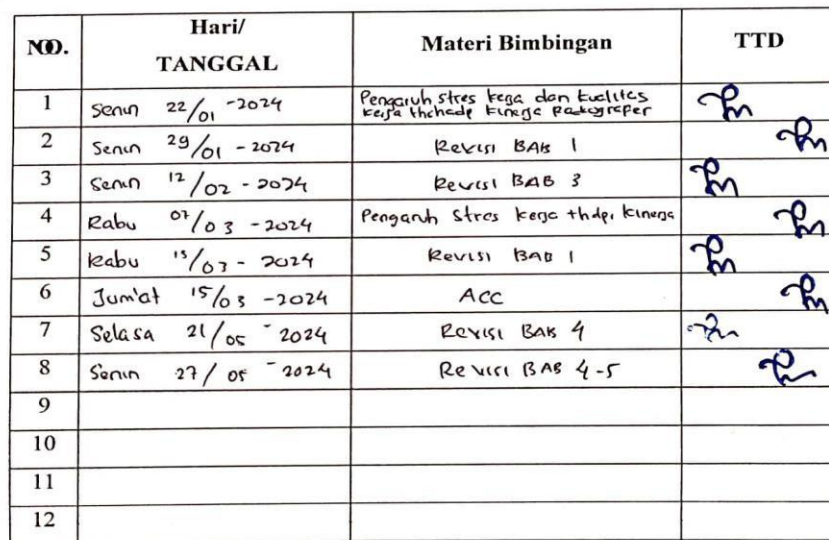 NO. Hari/ Materi Bimbingan TTD
TANGGAL
1 Senin 22/01 -2024 Pengaruh stres kerja dan kualitas
kerja kinerja
2 Senin 29/01 - 2024 Revisi BAB 1
3 Senin 12/02 - 2024 Revisi BAB 3
4 Rabu 07/03 - 2024 Pengaruh Stres kerja thdp. kinerja
5 Rabu 13/03 - 2024 Revisi BAB 1
6 Jum'at 15/03 - 2024 ACC
7 Selasa 21/05 - 2024 Revisi BAB 4
8 Senin 27/05 - 2024 Revisi BAB 4-5
9
10
11
12